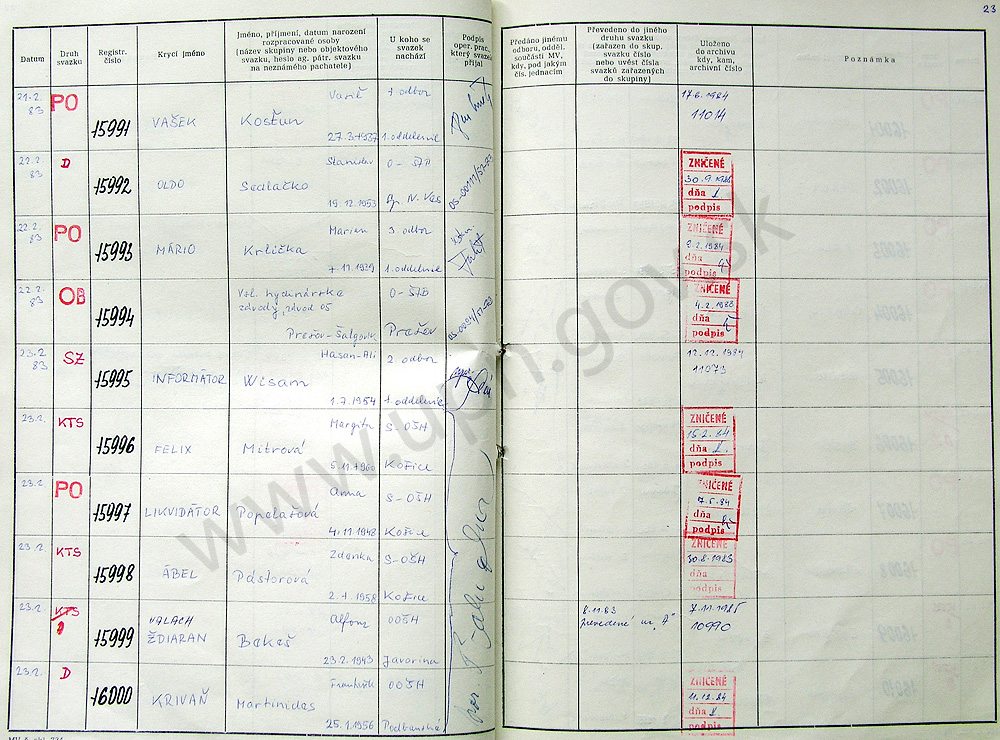 23
Datum
Druh svazku
Registr. číslo
Krycí jméno
Jméno, příjmení, datum narození rozpracované osoby (název skupiny nebo objektového svazku, heslo ag. pátr. svazku na neznámého pachatele)
U koho se svazek nachází
Podpis oper. prac., který svazek přijal
Předáno jinému odboru, odděl. součásti MV, kdy, pod jakým čís. jednacím
Převedeno do jiného druhu svazku (zařazen do skup. svazku číslo nebo uvést čísla svazků zařazených do skupiny)
Uloženo do archivu kdy, kam, archivní číslo
Poznámka
21.2. 83 PO 15991 VAŠEK Kosťun 27.3.1937 1. odbor 1. oddelenie
17.6.1984 11014
22.2. 83 D 15992 OLDO Stanislav Sedlačko 19.12.1953 O-ŠTB Sp. N. Ves
ZNIČENÉ 30.9.1988 dňa podpis
22.2. 83 PO 15993 MÁRIO Marian Krlička 7.11.1939 3 odbor 1. oddelenie
ZNIČENÉ 2.2.1984 dňa podpis
22.2. 83 OB 15994 Vsl. hydinárske závody, závod 05 Prešov-Šalgovík O-ŠTB Prešov
ZNIČENÉ 4.2.1988 dňa podpis
23.2. 83 SZ 15995 INFORMÁTOR Hasan-Ali Wisam 1.7.1954 2. odbor 1. oddelenie
12.12.1984 11073
23.2. KTS 15996 FELIX Margita Mitrová 5.11.1960 S-OŠH Košice
ZNIČENÉ 15.2.84 dňa podpis
23.2. PO 15997 LIKVIDÁTOR Anna Popelašová 4.11.1948 S-OŠH Košice
ZNIČENÉ 7.5.84 dňa podpis
23.2. KTS 15998 ÁBEL Zdenka Pástorová 2.1.1958 S-OŠH Košice
ZNIČENÉ 30.8.1983 dňa podpis
23.2. KTS 15999 VALACH ŽDIARAN Alfonz Bekeš 23.2.1943 OOŠH Javorina
8.11.83 prevedené na "A"
7.11.1985 10990
23.2. D 16000 KRIVAŇ František Martinides 25.1.1956 OOŠH Podbanská
ZNIČENÉ 11.12.84 dňa podpis
www.upn.gov.sk